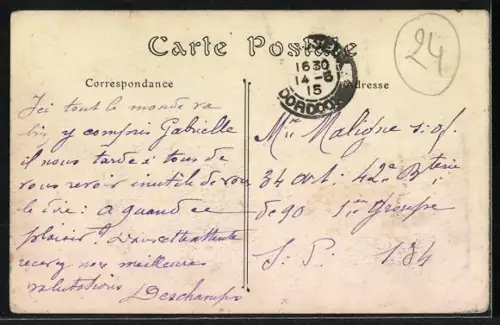 Carte Postale
Correspondance
Adresse
24
1630
14-6
15
DORDOGNE
Ici tout le monde va
bien y compris Gabrielle
il nous tarde à tous de
vous revoir inutile de vous
le dire: a quand ce
plaisir? Dans cette attente
recevez nos meilleures
salutations
Deschamps
Mr Maligne s.of.
34 art. 42e Bterie
de 90 1er Groupe
S. P. 134